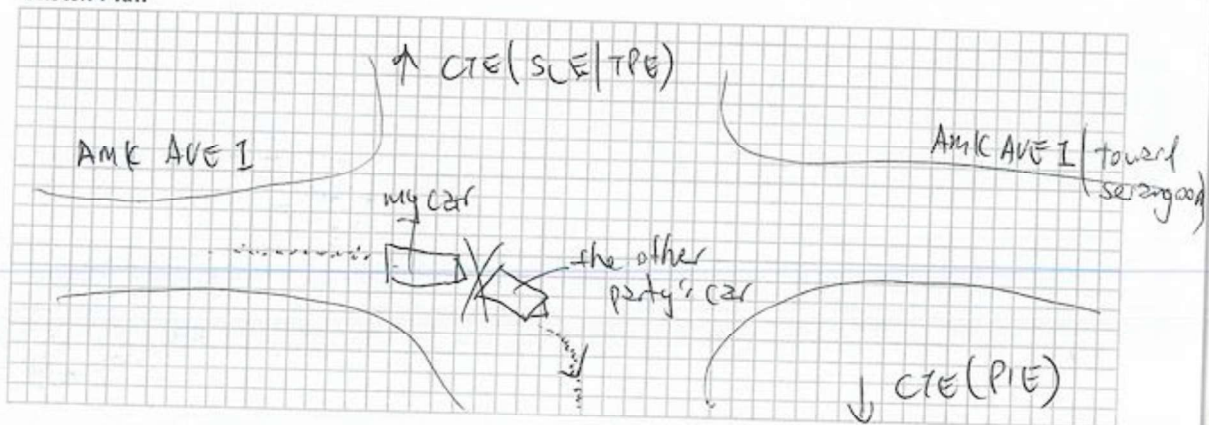 ↑ CTE( SLE|TPE)
AMK AVE 1
AMK AVE 1 (toward
serangoon)
my car
the other
party's car
↓ CTE(PIE)